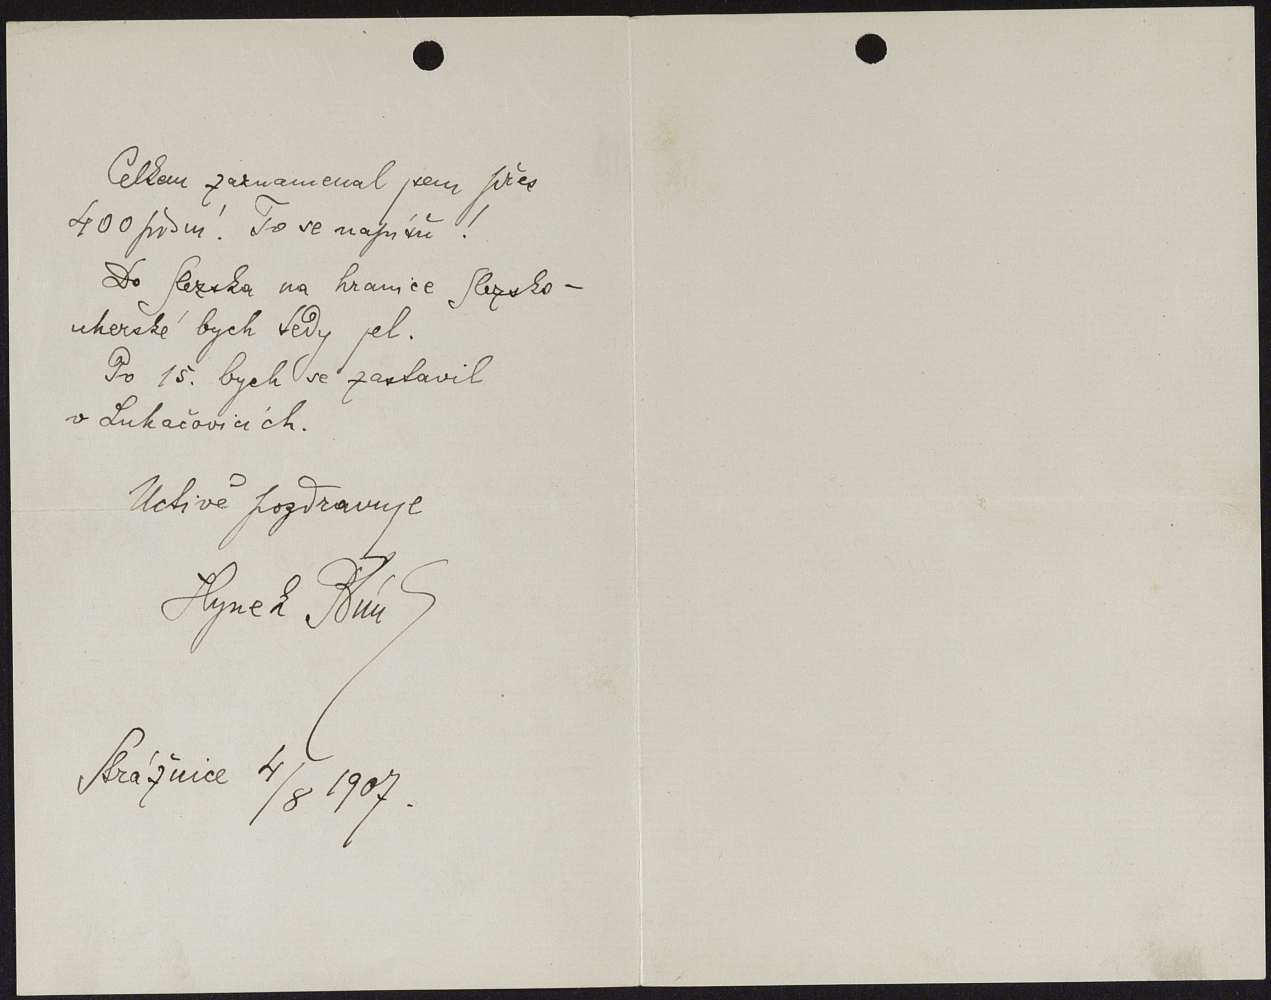 Celkem zaznamenal jsem přes
400 písní! To se napíšu!
Do Slezska na hranice Slezsko-
uherské bych tedy jel.
Po 15. bych se zastavil
v Luhačovicích.
Uctivě pozdravuje
Hynek Bím
Strážnice 4/8 1907.